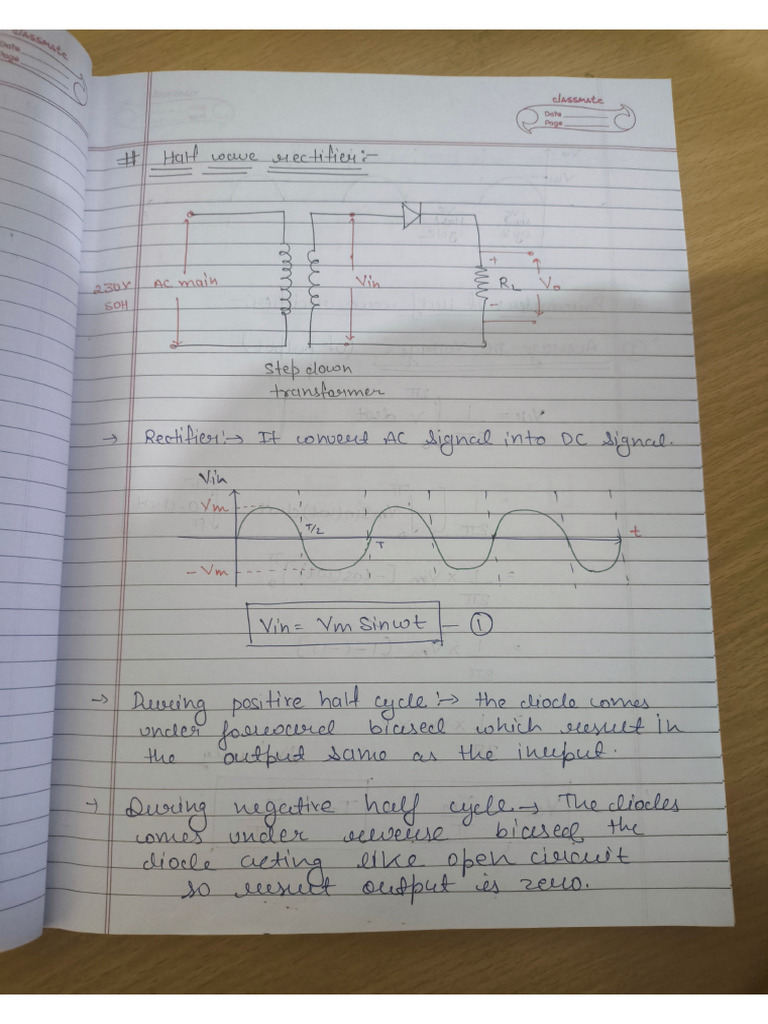 classmate
Date
Page
classmate
Date
Page
# Half wave rectifier:-
230V
50H
AC main
Vin
+
RL
-
Vo
Step down
transformer
→ Rectifier:→ It convert AC signal into DC signal.
Vin
Vm
T/2
T
t
-Vm
Vin = Vm Sinwt — ①
→ During positive half cycle:→ the diode comes
under forward biased which result in
the output same as the input.
→ During negative half cycle → The diodes
comes under reverse biased the
diode acting like open circuit
so result output is zero.